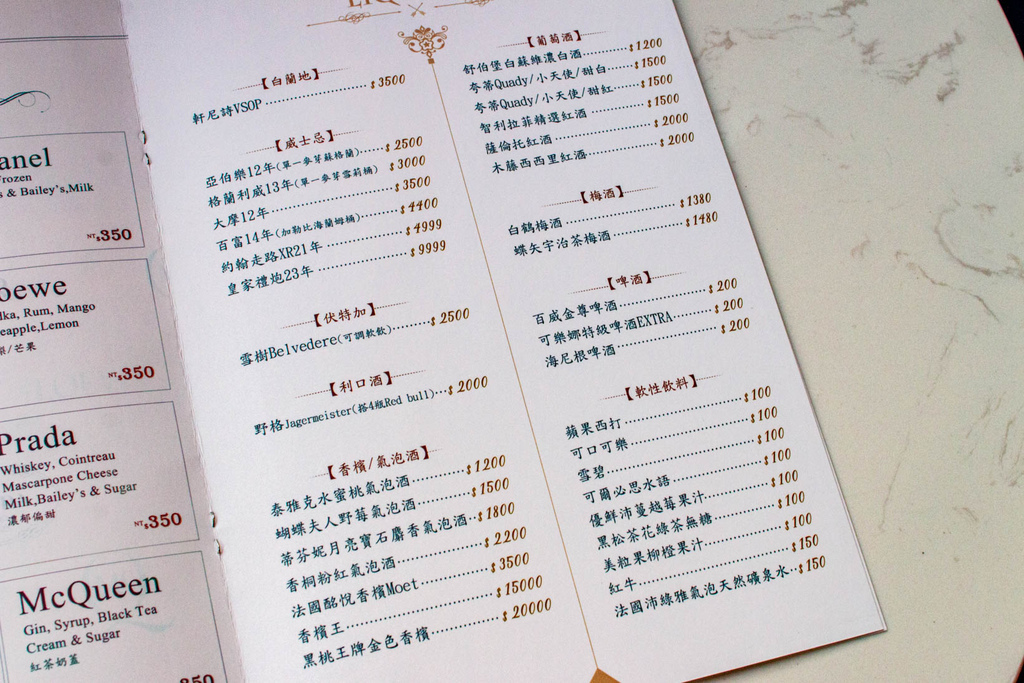 anel
rozen
s & Bailey's,Milk
NT$350
oewe
dka, Rum, Mango
eapple,Lemon
/芒果
NT$350
Prada
Whiskey, Cointreau
Mascarpone Cheese
Milk,Bailey's & Sugar
濃郁偏甜
NT$350
McQueen
Gin, Syrup, Black Tea
Cream & Sugar
紅茶奶蓋
350
LIQ
【白蘭地】
軒尼詩VSOP $3500
【威士忌】
亞伯樂12年(單一麥芽蘇格蘭) $2500
格蘭利威13年(單一麥芽雪莉桶) $3000
大摩12年 $3500
百富14年(加勒比海蘭姆桶) $4400
約翰走路XR21年 $4999
皇家禮炮23年 $9999
【伏特加】
雪樹Belvedere(可調軟飲) $2500
【利口酒】
野格Jagermeister(搭4瓶Red bull) $2000
【香檳/氣泡酒】
泰雅克水蜜桃氣泡酒 $1200
蝴蝶夫人野莓氣泡酒 $1500
蒂芬妮月亮寶石麝香氣泡酒 $1800
香桐粉紅氣泡酒 $2200
法國酩悅香檳Moet $3500
香檳王 $15000
黑桃王牌金色香檳 $20000
【葡萄酒】
舒伯堡白蘇維濃白酒 $1200
夸蒂Quady/小天使/甜白 $1500
夸蒂Quady/小天使/甜紅 $1500
智利拉菲精選紅酒 $1500
薩倫托紅酒 $2000
木藤西西里紅酒 $2000
【梅酒】
白鶴梅酒 $1380
蝶矢宇治茶梅酒 $1480
【啤酒】
百威金尊啤酒 $200
可樂娜特級啤酒EXTRA $200
海尼根啤酒 $200
【軟性飲料】
蘋果西打 $100
可口可樂 $100
雪碧 $100
可爾必思水語 $100
優鮮沛蔓越莓果汁 $100
黑松茶花綠茶無糖 $100
美粒果柳橙果汁 $100
紅牛 $150
法國沛綠雅氣泡天然礦泉水 $150